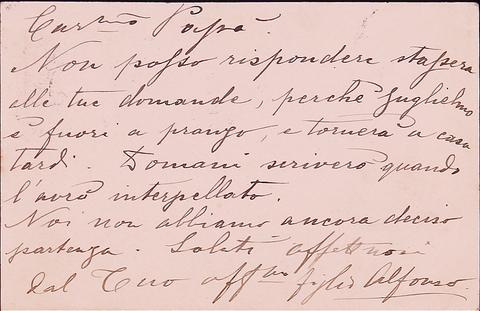 Car.mo Papà.
Non posso rispondere stassera
alle tue domande, perchè Guglielmo
è fuori a pranzo, e tornerà a casa
tardi. Domani scriverò quando
l'avrò interpellato.
Noi non abbiamo ancora deciso
partenza. Saluti affettuosi
dal Tuo aff.mo figlio Alfonso.